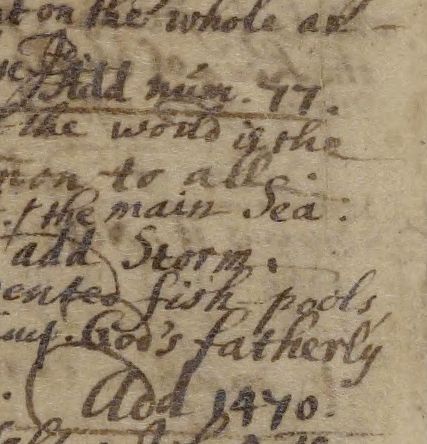 on the whole ar-
Add num. 77.
the world is the
mon to all.
the main Sea:
add Storm.
ented fish pools,
God's fatherly
Add 1470.